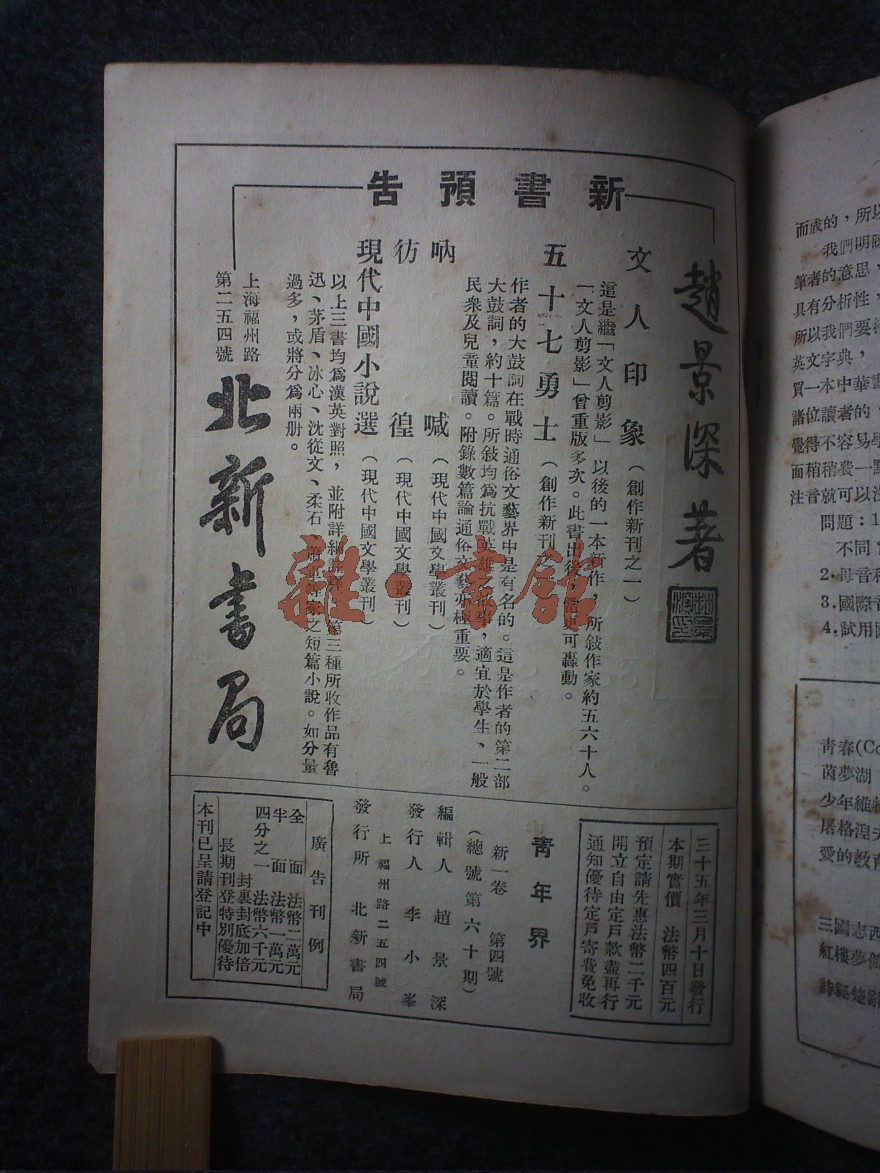 新書預告
趙景深著
文人印象（創作新刊之一）
這是繼「文人剪影」以後的一本新作，所敍作家約五六十人。
「文人剪影」曾重版多次。此書出後，當更可轟動。
五十七勇士（創作新刊之
作者的大鼓詞在戰時通俗文藝界中是有名的。這是作者的第二部
大鼓詞，約十篇。所敍均爲抗戰英雄，適宜於學生、一般
民衆及兒童閱讀。附錄數篇論通俗文藝亦極重要。
吶喊（現代中國文學叢刊）
彷徨（現代中國文學叢刊）
現代中國小說選（現代中國文學叢刊）
以上三書均爲漢英對照，並附詳細第三種所收作品有魯
迅、茅盾、冰心、沈從文、柔石、等家之短篇小說。如分量
過多，或將分爲兩册。
上海福州路
第二五四號
北新書局
三十五年三月十日發行
本期實價 法幣四百元
預定請先惠法幣二千元
開立自由定戶款盡再行
通知優待定戶寄費免收
青年界
新一卷 第四號
（總號第六十期）
編輯人 趙景深
發行人 李小峯
上福州路二五四號
發行所 北新書局
廣告刊例
全面 法幣二萬元
半面 法幣一萬元
四分之一 法幣六千元
封裏封底加倍
長期刊登特別優待
本刊已呈請登記中
雜·書館
而成的，所以
我們明瞭
筆者的意思，
具有分析性，
所以我們要
英文字典，
買一本中華書
諸位讀者的，
覺得不容易學
面稍稍費一點
注音就可以沒
問題：1
不同
2.母音和
3.國際音
4.試用國
青春(Co
茵夢湖
少年維特
屠格涅夫
愛的教育
三國志西
紅樓夢
詩經楚辭